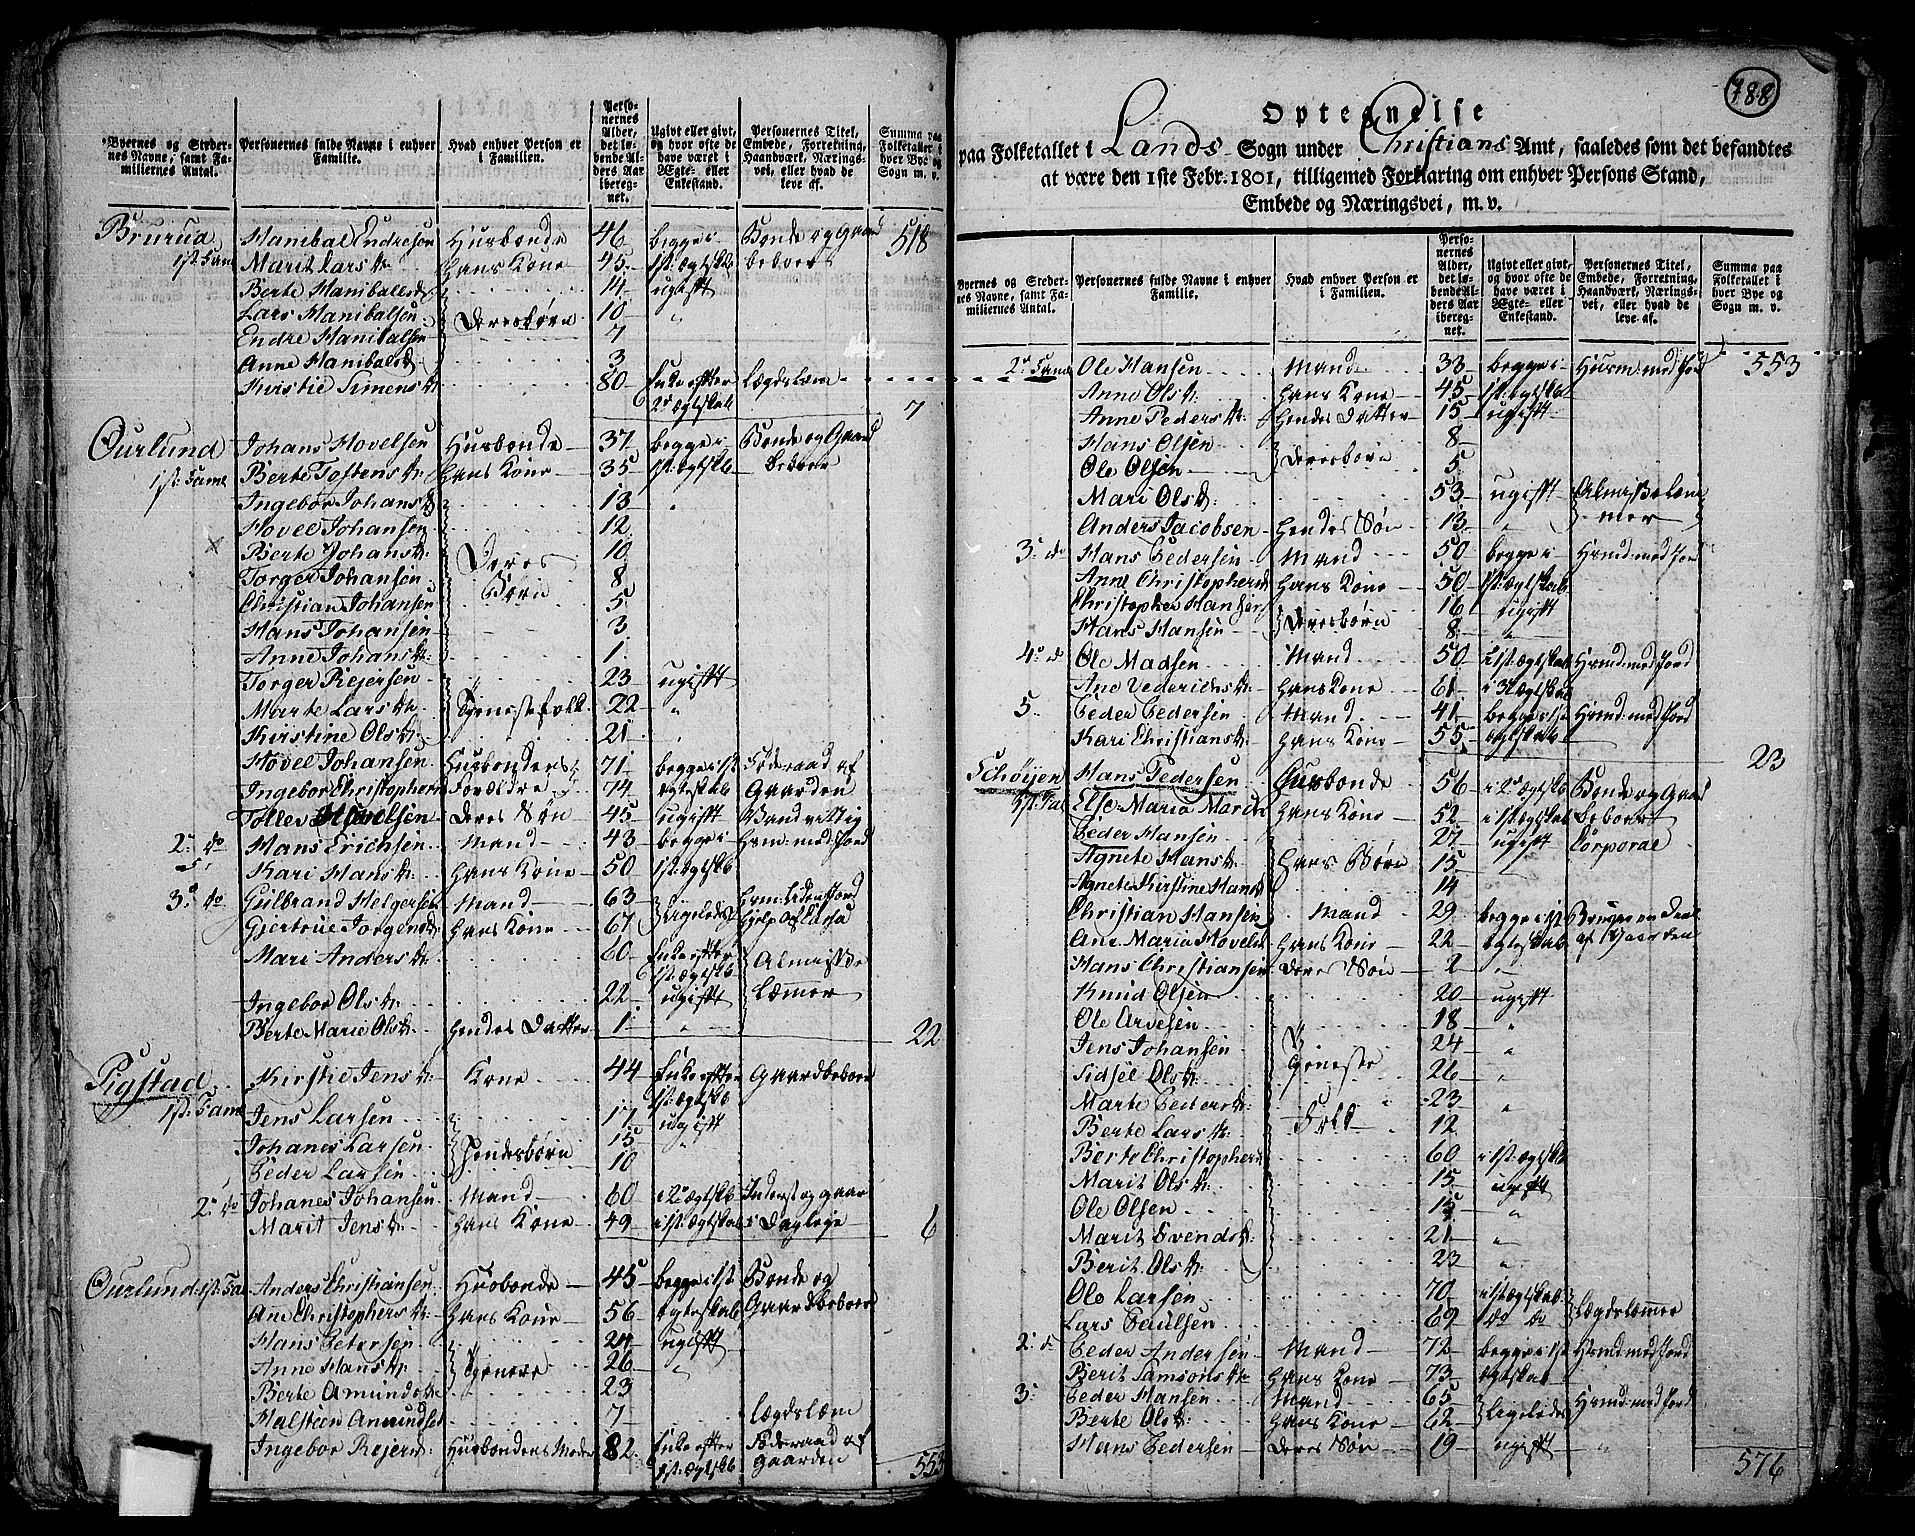 Byernes og Steder-
nes Navne, samt Fa-
miliernes Antal.
Personernes fulde Navne i enhver
Familie.
Hvad enhver Person er
i Familien.
Perso-
nernes
Alder,
det lø-
bende Al-
ders Aar
iberegne-
net.
Ugivt eller givt,
og hvor ofte de
have været i
Ægte- eller
Enkestand.
Personernes Titel,
Embede, Forretning,
Haandværk, Nærings-
vei, eller hvad de
leve af.
Summa paa
Folketallet i
hver Bye og
Sogn m. v.
Brurud Hanibal Endresen Husbonde 46 begge i Bonde og Gaard 518
1st: Fam Marit Lars dr. hans Kone 45 1st: Ægtskab beboer
Berte Hanibalsd 14 ugift
Lars Hanibalsen Deres børn 10 "
Endre Hanibalsen 7
Anne Hanibalsd 3
Kirstie Simens dr 80 Enke efter Lægdslem
2d Ægtskab 7
Ourlund Johans Hovelsen Husbonde 37 begge i Bonde og Gaard
1st: Fame Berte Tostens dr. hans Kone 35 1st: Ægtskb beboer
Ingebor Johans dr 13 "
Hovel Johansen 12
Berte Johans dr: Deres 10
Torger Johansen Børn 8
Christian Johansen 5
Hans Johansen 3
Anne Johans dr: 1
Torger Rejersen 23 ugift
Marte Lars dr. Tjenestefolk 22 "
Kirstine Ols dr 21 "
Hovel Johansen Husbondens 71 begge i 1st Føderaad af
Ingebor Christophers Forældre 74 Ægteskab Gaarden
Tollev Hovelsen Deres Søn 45 ugift Vandvittig
2: do Hans Erichsen Mand 43 begge i Hsm: med Jord
Kari Hans dr. hans Kone 50 1st: Ægtskb
3: do Gulbrand Helgersen Mand 63 Ligeledes Hsm: uden Jord
Gjertrue Jorgensdr: hans Kone 67 Hjelp af Casa
Mari Anders dr. 60 Enke efter Almisse
1st: Ægtskb
Ingebor Ols dr. 22 ugift Lemmer
Berte Marie Ols dr. hendes Datter 1 " 22
Pigstad Kirstie Jens dr: Kone 44 Enke efter Gaardbeboer
1st: Ægtskb
1st: Fame Jens Larsen 17 ugift
Johanes Larsen Hendes børn 15 "
Peder Larsen 10
2: do Johanes Johansen Mand 60 i 2d Ægtskb Inderst og gaar
Marit Jens dr. hans Kone 49 i 1st: Ægtskab i Dagleje 6
Ourlund 1st: Fa Anders Christiansen Husbonde 45 begge i 1st Bonde og
Ane Christophers dr. hans Kone 56 Ægteskab Gaardbeboer
Hans Petersen 24 ugift
Anne Hans dr Tjenere 26 "
Berte Amunds dr 23
Halsteen Amundsen 7 Lægdslem
Ingebor Rejersd: Husbondens Moder 82 Enke efter Føderaad af
1st: Ægtskb Gaarden 553
788
Optegnelse
paa Folketallet i Lands Sogn under Christians Amt, saaledes som det befandtes
at være den 1ste Febr. 1801, tilligemed Forklaring om enhver Persons Stand,
Embede og Næringsvei, m. v.
Byernes og Steder-
nes Navne, samt Fa-
miliernes Antal.
Personernes fulde Navne i enhver
Familie.
Hvad enhver Person er
i Familien.
Perso-
nernes
Alder,
det lø-
bende Al-
ders Aar
ibereg-
net.
Ugivt eller givt,
og hvor ofte de
have været i
Ægte- eller
Enkestand.
Personernes Titel,
Embede, Forretning,
Haandværk, Nærings-
vei, eller hvad de
leve af.
Summa paa
Folketallet i
hver Bye og
Sogn m. v.
2: Fame Ole Hansen Mand 33 begge i Husm: med Jord 553
Anne Ols dr. hans Kone 45 1st: Ægtskab
Anne Peders dr. hendes Datter 15 ugift
Hans Olsen Deres børn 8
Ole Olsen 5
Mari Ols dr. 53 ugift Almisselem
Anders Jacobsen hendes Søn 13 " mer
3: do Hans Pedersen Mand 50 begge i Hsmd: med Jord
Anne Christophersd hans Kone 50 1st: Ægtskab
Christopher Hansen Deres børn 16 ugift
Hans Hansen 8 "
4: d Ole Madsen Mand 50 i 1st: Ægtskab Hsmd: med Jord
Ane Vederichs dr. hans Kone 61 i 3 Ægtskab
5 Peder Pedersen Mand 41 begge i 1st Hsmd: med Jord
Kari Christians dr. hans Kone 55 Ægtskab 23
Schøyen Hans Pedersen Husbonde 56 i 2d Ægtskb Bonde og Gaard
1st: Fa: Else Maria hans Kone 52 i 1st Ægtskab beboer
Peder Hansen 27 ugift Corporal
Agnete Hans dr. hans Børn 15
Agnete Kirstine Hansd 14
Christian Hansen Mand 29 begge i 1st Bruger en Deel
Ane Maria Hovels hans Kone 22 Ægtskab af Gaarden
Hans Christiansen Deres Søn 2 "
Knud Olsen 20 ugift
Ole Arvesen 18 "
Jens Johansen Tjeneste 24 "
Sidsel Ols dr. 26 "
Marte Peders dr. 23 "
Berte Lars dr. Folk 12
Berte Christophersd 60 i 1st: Ægtskab
Marit Ols dr. 15 ugift
Ole Olsen 15 "
Marit Svends dr. 21 "
Berit Ols dr. 23 "
Ole Larsen 70 i 1st Ægtskab Lægdslemmer
Lars Paulsen 69 1 do do
2: d Peder Andersen Mand 72 begge i 1st Hsmd: med Jord
Berit Samsons dr hans Kone 73 Ægtskab
3: Peder Hansen Mand 65 Ligeledes Hsmd: med Jord
Berte Ols dr. hans Kone 62
Hans Pedersen Deres Søn 19 ugift " 576